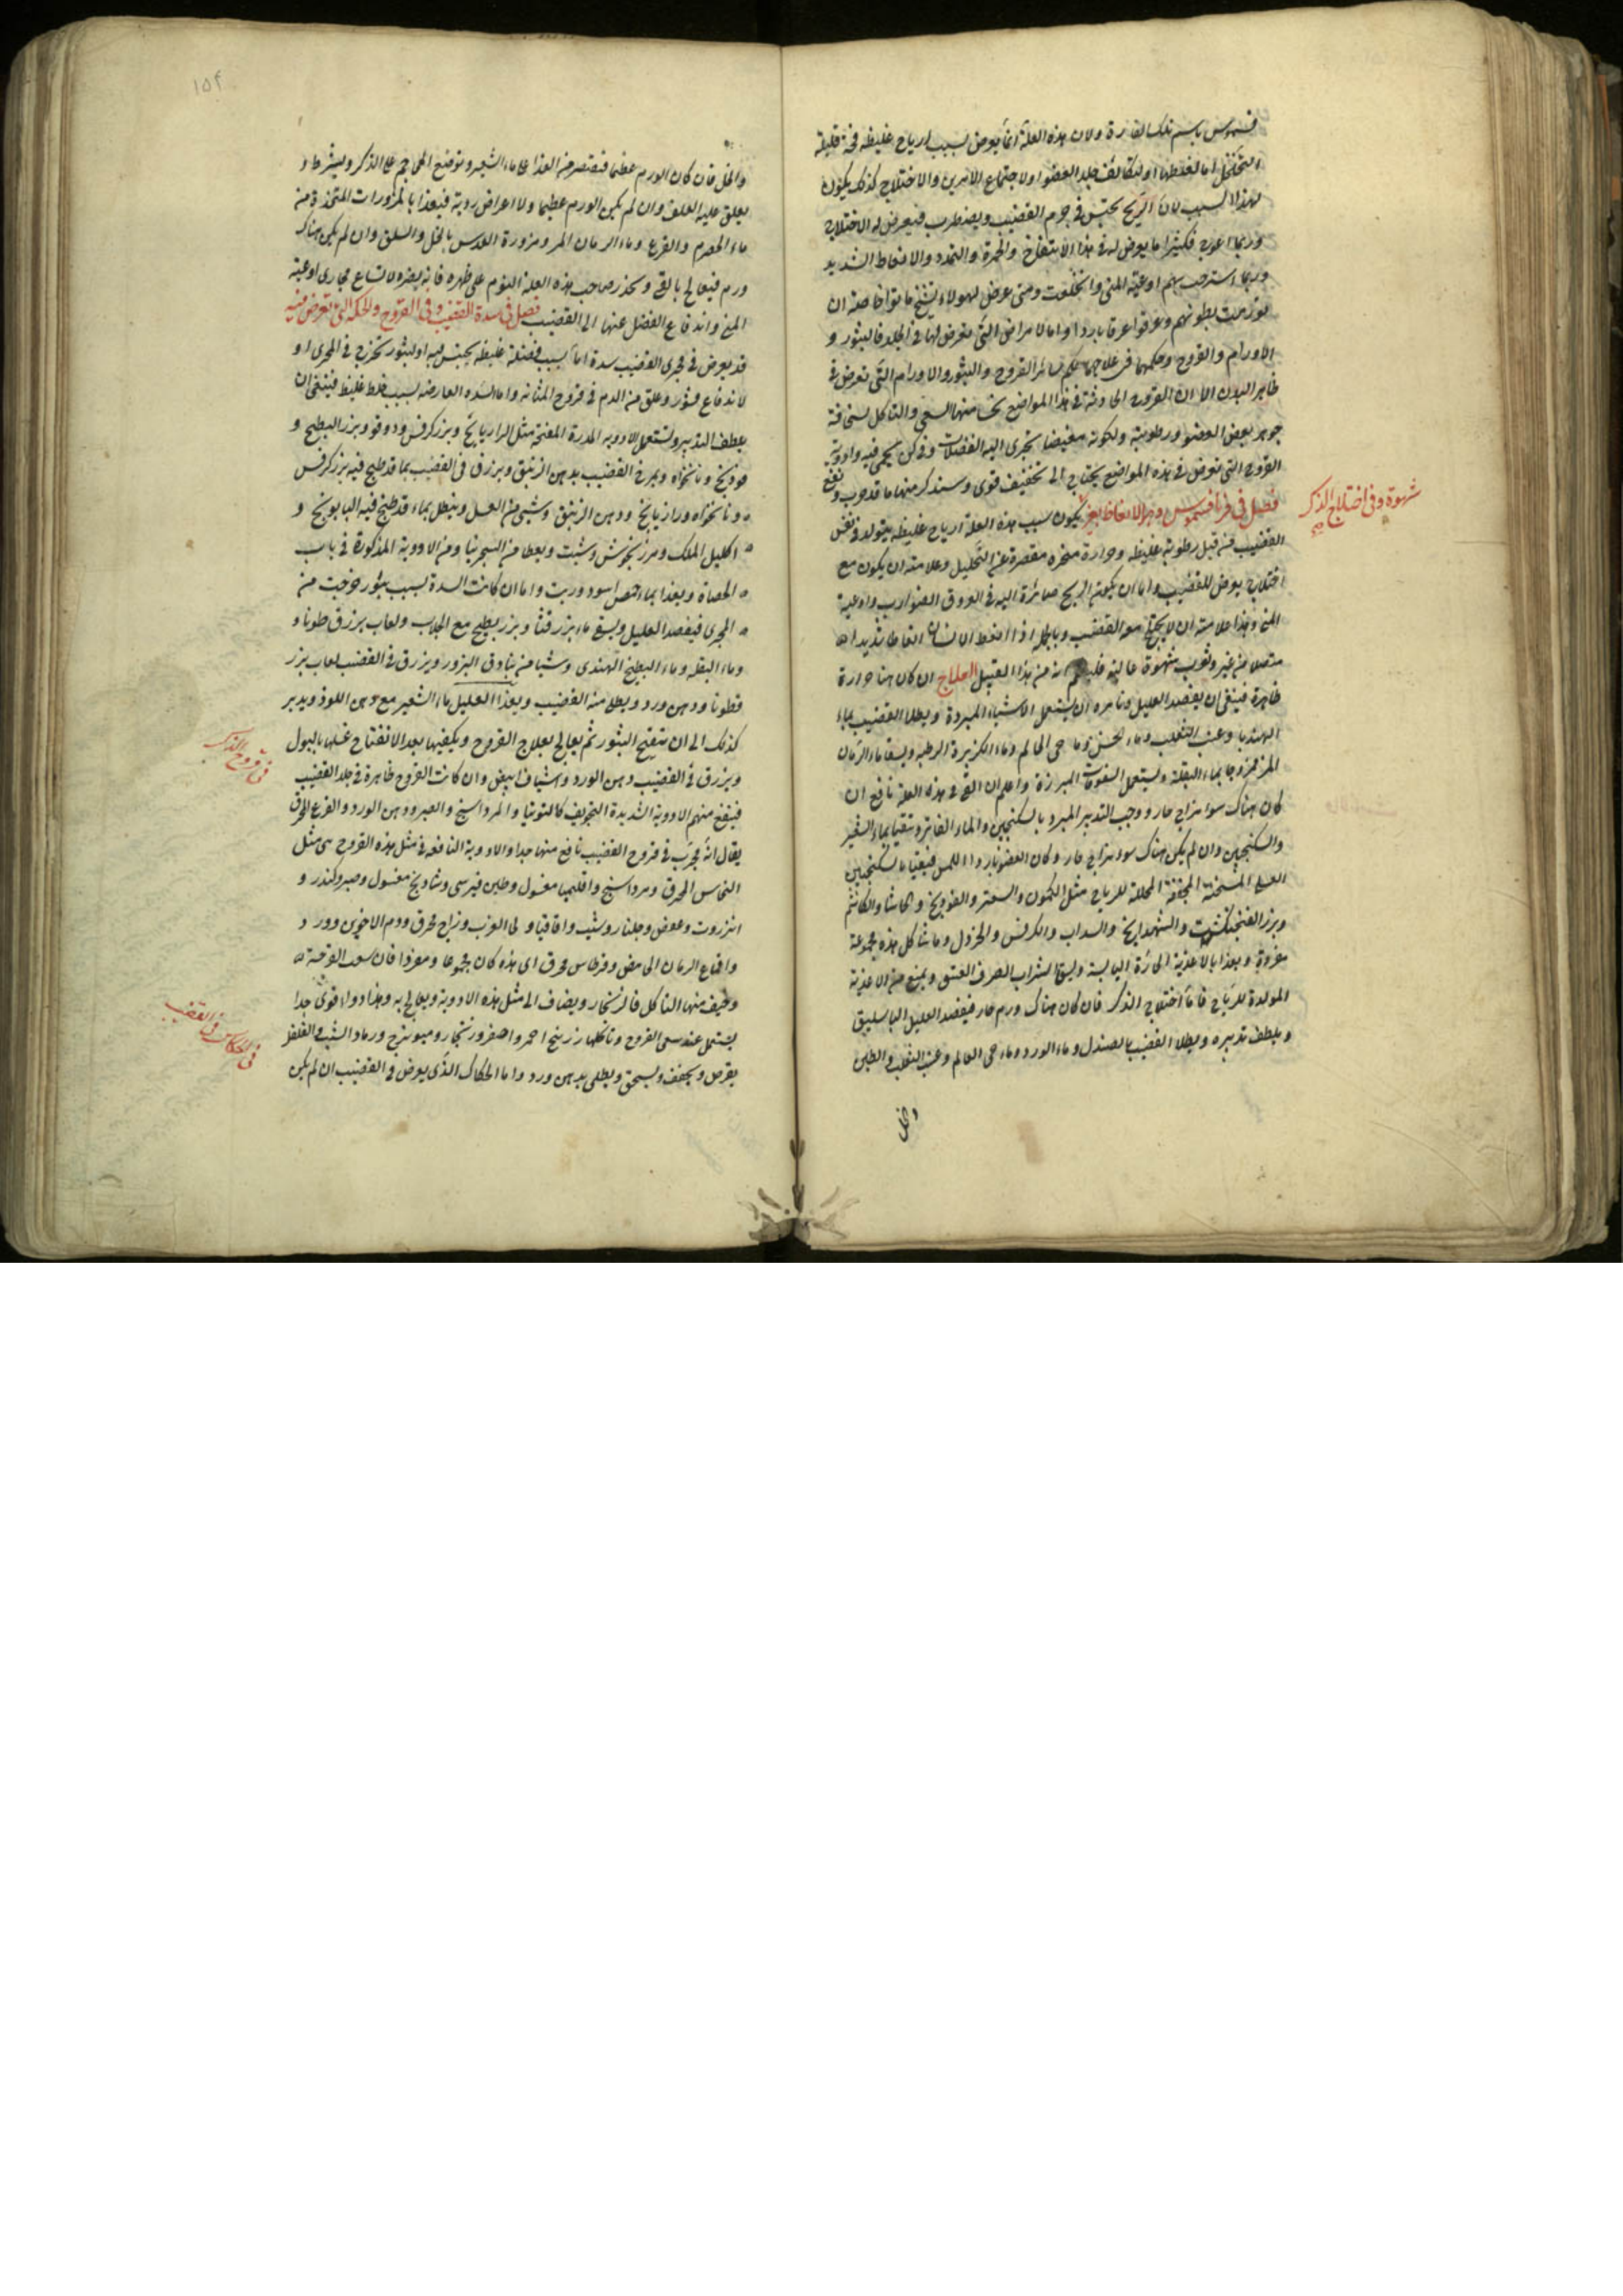 فسموس باسم تلك القارة ولان هذه العلة انما يعرض بسبب ارياح غليظه فجة قليلة
التخلخل اما لغلظها او لتكاثف جلد العضو او لاجتماع الامرين والاختلاج كذلك يكون
لهذا السبب لان الريح يحتبس في جرم القضيب ويضطرب فيعرض له الاختلاج
وربما اعوج فكثيرا ما يعرض له في هذا الانتفاخ والحمرة والتمدد والانعاظ الشديد
وربما استرخت بهم اوعية المنى وانخلعت ومتى عرض لهولاء تشنج ماتوا خاصة ان
تورمت بطونهم وعرقوا عرقا باردا واما الامراض التي تعرض لها في الجلد فالبثور و
الاورام والقروح وحكمها في علاجها حكم سائر القروح والبثور والاورام التي تعرض في
ظاهر البدن الا ان القروح الحادثة في هذا المواضع منها السعى والتاكل لسخافة
جوهر بعض العضو ورطوبته ولكونه مغيضا تجرى اليه الفضلات وفي كن يحمى فيه وادوية
القروح التي تعرض في هذه المواضع يحتاج الى تجفيف قوى وسنذكر منها ما قد جرب ونفع
فصل في فريافسموس وهو الانعاظ بغير
شهوة وفي اختلاج الذكر
يكون سبب هذه العلة ارياح غليظه يتولد في نفس
القضيب من قبل رطوبة غليظه وحرارة مبخره مقصرة عن التحليل وعلامته ان يكون مع
اختلاج يعرض للقضيب واما ان يكون الريح صائرة اليه في العروق الضوارب واوعية
المنى وهذا علامته ان لا يختلج معه القضيب وبالجملة اذا انعظ الانسان انعاظا شديدا
متصلا من غير وثوب شهوة غالبة فليعلم انه من هذا القبيل العلاج ان كان هنا حرارة
ظاهرة فينبغى ان يفصد العليل وتامره ان يستعمل الاشياء المبردة ويطلا القضيب بماء
الهندبا وعنب الثعلب وماء الخس وما حى العالم وماء الكزبرة الرطبه ويسقا ماء الرمان
المز ممزوجا بماء البقلة ويستعمل السفوفات المبرزة واعلم ان القى في هذه العلة نافع ان
كان هناك سوء مزاج حار ووجب التدبير المبرد بالسكنجبين والماء الفاتر وتنقيا بماء الشعير
والسكنجبين وان لم يكن هناك سوء مزاج حار وكان العضو باردا اللمس فيقيا بالسكنجبين
العسلى المسخنة المجففة المحللة للرياح مثل الكمون والسعتر والفودنج والحاشا والكاشم
وبزر الفنجنكشت والشهدانج والسداب والكرفس والخردل وما شاكل هذه مجموعة
مفردة ويغذا بالاغذية الحارة اليابسة ويسقى الشراب الصرف العتيق ويمنع من الاغذية
المولدة للرياح فاما اختلاج الذكر فان كان هناك ورم حار فيفصد العليل الباسليق
ويلطف تدبيره ويطلا القضيب بالصندل وماء الورد وماء حى العالم وعنب الثعلب والطين
والخل
١٥٤
والخل فان كان الورم عظيما فيقتصر من الغذا على ماء الشعير وتوضع المحاجم على الذكر ويشرط و
يعلق عليه العلق وان لم يكن الورم عظيما ولا اعراض ردية فيغذا بالمزورات المتخذة من
ماء الحصرم والقرع وماء الرمان المز ومزورة العدس بالخل والسلق وان لم يكن هناك
ورم فيعالج بالقى وتحذر صاحب هذه العلة النوم على ظهره فانه يضره لاتساع مجارى اوعية
المنى واندفاع الفضل عنها الى القضيب فصل في سدة القضيب وفي القروح والحكه التي تعرض فيه
قد يعرض في مجرى القضيب سدة اما بسبب فضلة غليظه يحتبس فيه او لبثور تخرج في المجرى او
لاندفاع قشور وعلق من الدم في قروح المثانه واما السدة العارضه بسبب خلط غليظ فينبغى ان
يلطف التدبير وتستعمل الادوية المدرة المفتحة مثل الرازيانج وبزر كرفس ودوقو وبزر البطيخ و
فودنج ونانخواه ويمرخ القضيب بدهن الزنبق ويزرق في القضيب بما قد طبخ فيه بزر كرفس
ونانخواه ورازيانج ودهن الزنبق وشئ من العسل وينطل بماء قد طبخ فيه البابونج و
اكليل الملك ومرزنجوش وشبت ويعطا من السجرنيا ومن الادوية المذكورة في باب
الحصاة ويغذا بماء حمص اسود وزيت واما ان كانت السدة بسبب بثور خرجت من
المجرى فيفصد العليل ويسقى ماء بزر قثا وبزر بطيخ مع الجلاب ولعاب بزر قطونا و
وماء البقلة وماء البطيخ الهندى وشيا من بنادق البزور ويزرق في القضيب لعاب بزر
قطونا ودهن ورد ويطلا منه القضيب ويغذا العليل ماء الشعير مع دهن اللوز ويدبر
كذلك الى ان تنفتح البثور ثم يعالج بعلاج القروح ويكفيها بعد الانفتاح غسلها بالبول
في قروح الذكر
ويزرق في القضيب دهن الورد واشياف ابيض وان كانت القروح ظاهرة في جلد القضيب
فينفع منهم الادوية الشديدة التجفيف كالتوتيا والمرداسنج والصبر ودهن الورد والقرع المحرق
يقال انه مجرب في قروح القضيب نافع منها جدا والادوية النافعه في مثل هذه القروح هى مثل
النحاس المحرق ومرداسنج واقليميا مغسول وطين قبرسى وشادنج مغسول وصبر وكندر و
انزروت وعفص وجلنار وشب واقاقيا و لحى الغرب وزاج محرق ودم الاخوين وورد
واقماع الرمان الحامض وقرطاس محرق اى هذه كان مجموعا ومفردا فان سعت القرحة
وخيف منها التاكل فالزنجار ويضاف الى مثل هذه الادوية ويعالج به وهذا دواء قوى جدا
يستعمل عند سعى القروح وتاكلها زرنيخ احمر واصفر وزنجار وميويزج ورماد الشبث والفلفل
في الحكاك في القضيب
يقرص ويجفف ويسحق ويطلى بدهن ورد واما الحكاك الذى يعرض في القضيب ان لم يكن